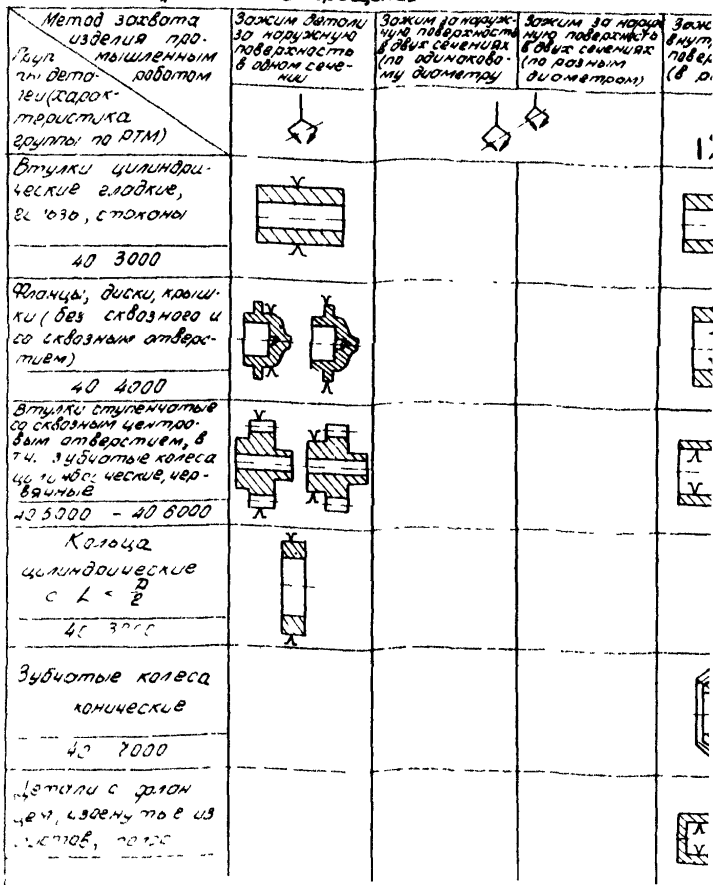 Метод захвата
изделия про-
мышленным
роботом
Груп
пы дета-
лей (харак-
теристика
группы по РТМ)
Зажим детали
за наружную
поверхность
в одном сече-
нии
Зажим за наруж-
ную поверхность
в двух сечениях
(по одинаково-
му диаметру
Зажим за наруж
ную поверхность
в двух сечениях
(по разным
диаметрам)
Заж
внут
повер
(в р
Втулки цилиндри-
ческие гладкие,
стаканы
40 3000
Фланцы, диски, крыш-
ки (без сквозного и
со сквозным отверс-
тием)
40 4000
Втулки ступенчатые
со сквозным центро-
вым отверстием, в
т.ч. зубчатые колеса
цилиндрические, чер-
вячные
40 5000 - 40 6000
Кольца
цилиндрические
с L < D/2
40
Зубчатые колеса
конические
40 7000
Детали с флан
цем, изогнутые из
листов,